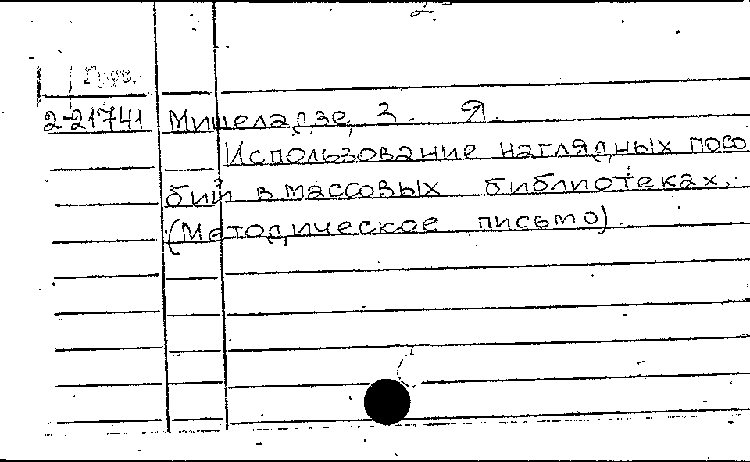 2-21741 Мишеладзе, З. Я.
Использование наглядных посо
бий в массовых библиотеках.
(Методическое письмо).